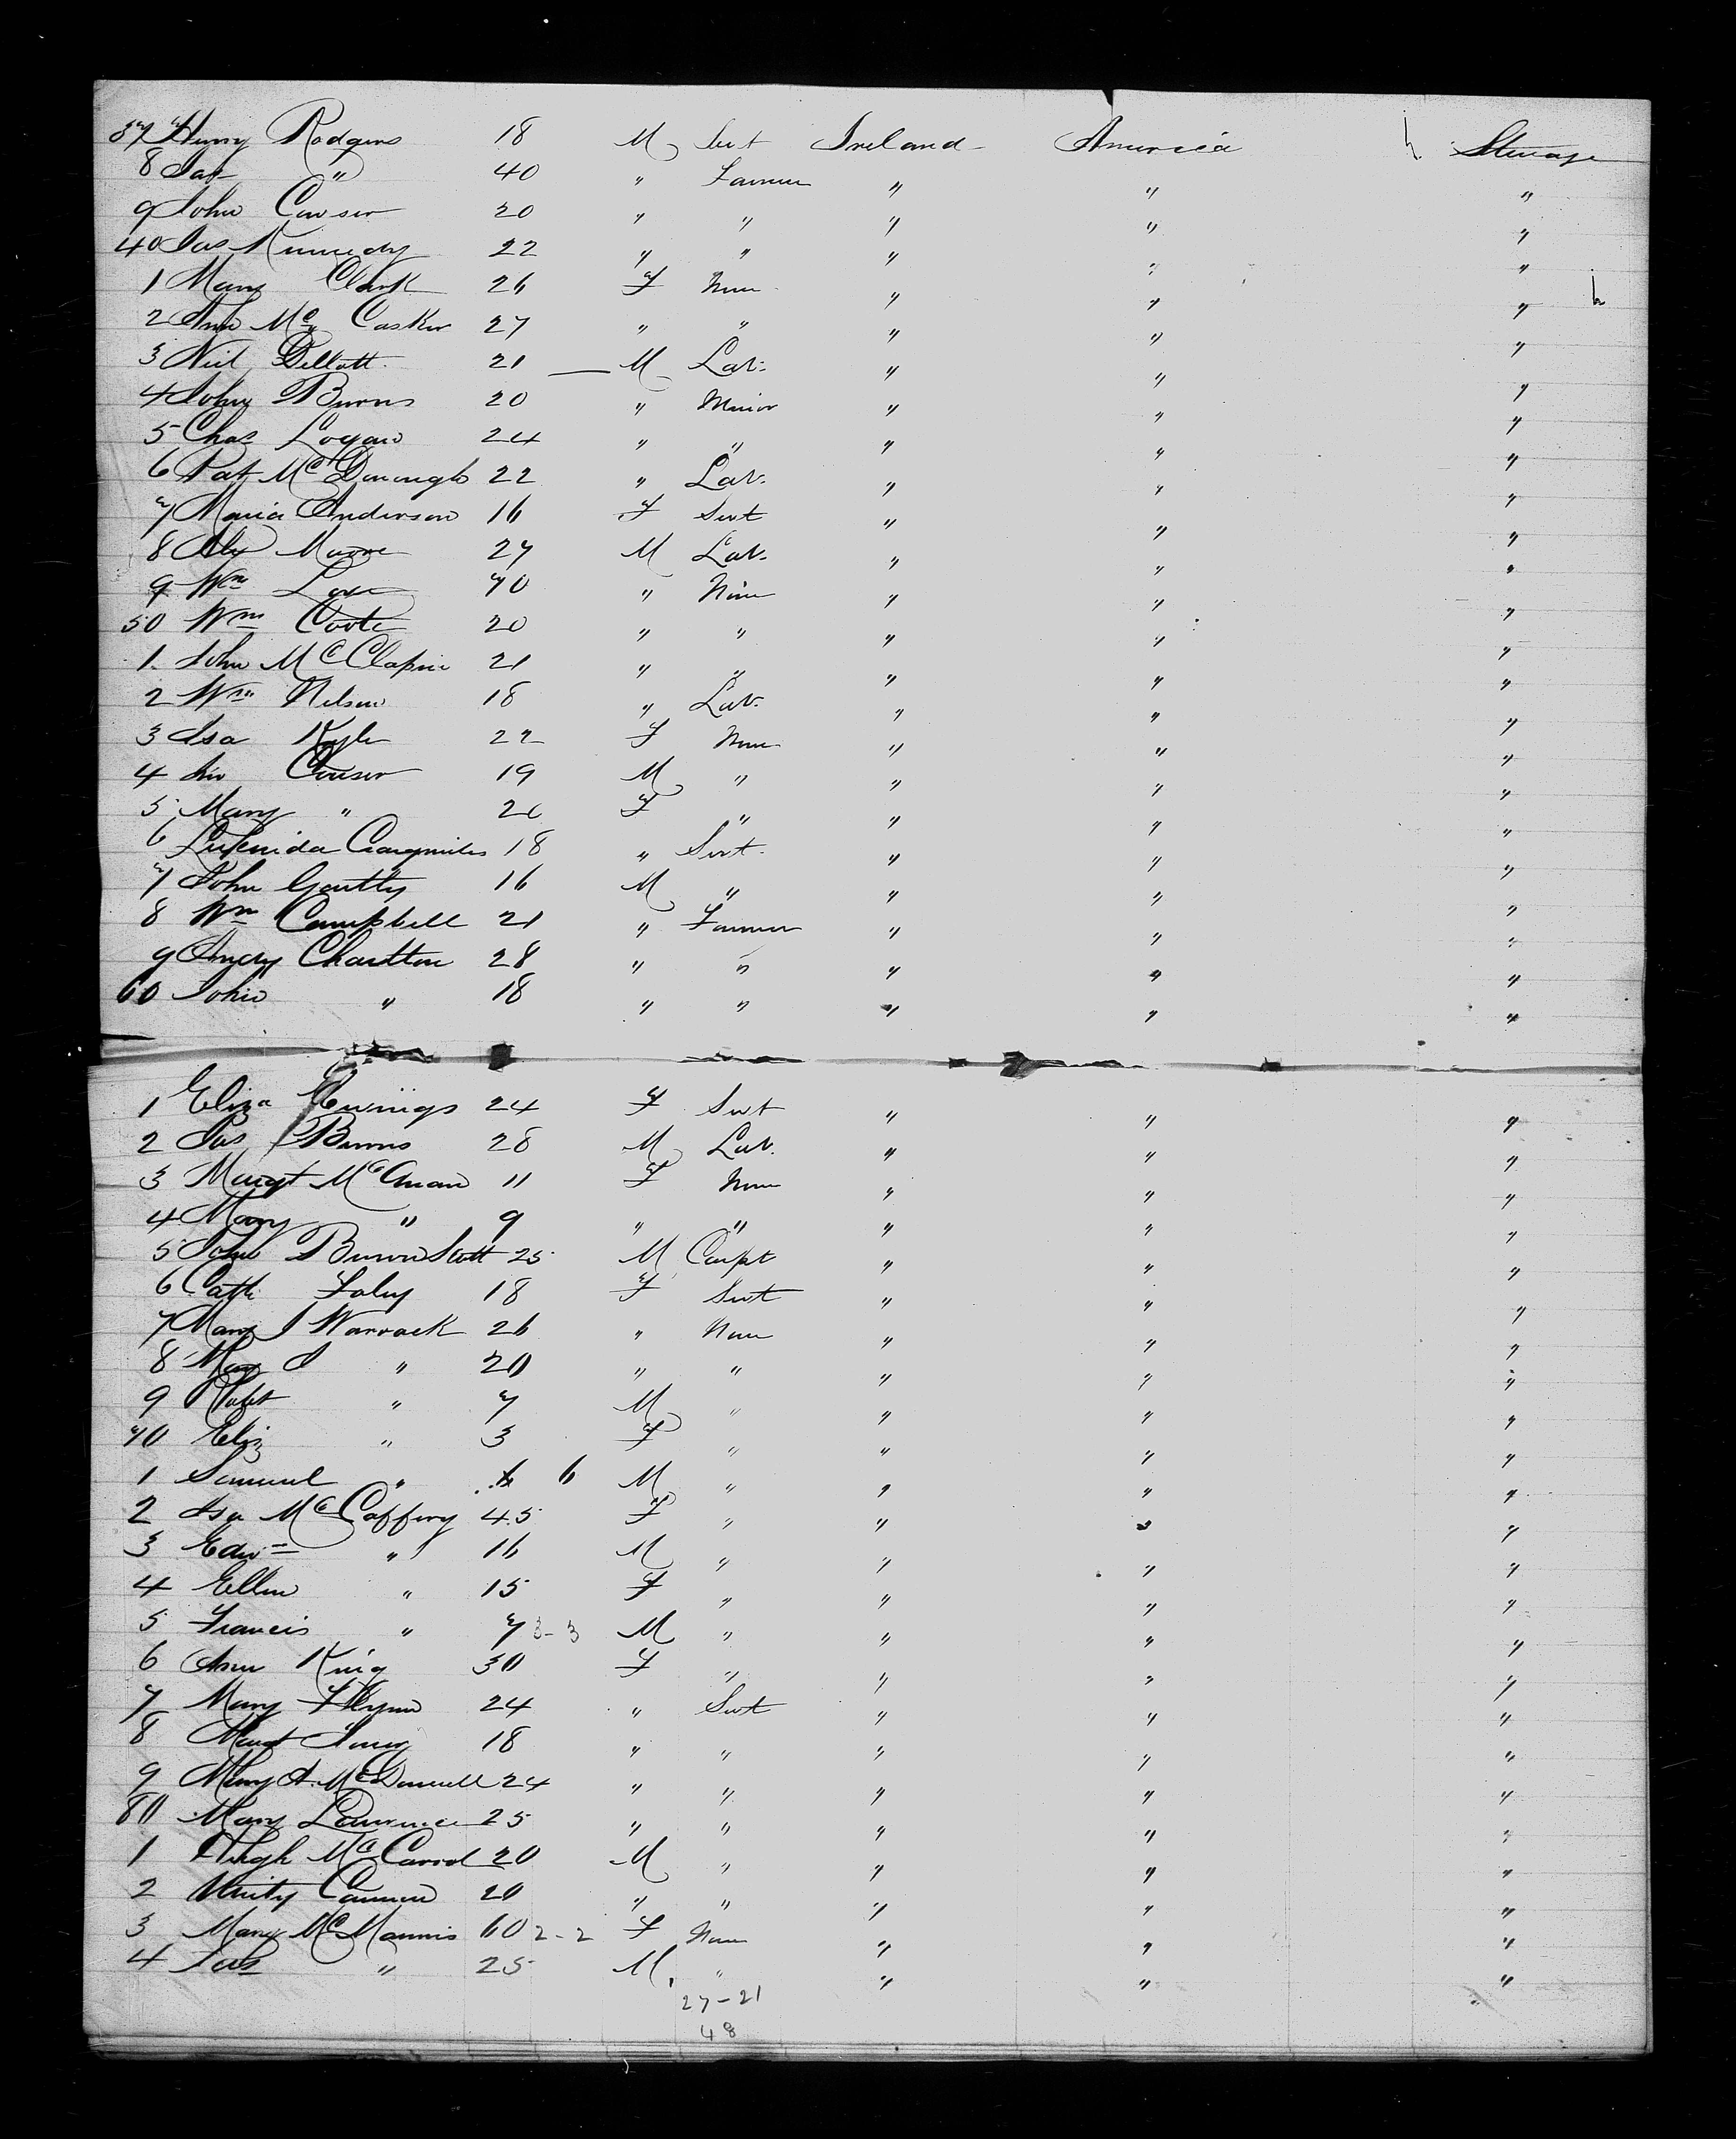 37 Henry Rodgers 18 M Sert Ireland America Steerage
8 Jas " 40 " Farmer " " "
9 John Cowser 20 " " " " "
40 Jas Kennedy 22 " " " " "
1 Mary Clark 26 F None " " "
2 Ann Mc Casker 27 " " " " "
3 Neil Dellott 21 M Lab. " " "
4 John Burns 20 " Minor " " "
5 Chas Logan 24 " " " " "
6 Pat McDonough 22 " Lab. " " "
7 Maria Anderson 16 F Sert " " "
8 Alex Moore 27 M Lab. " " "
9 Wm Love 70 " None " " "
50 Wm Coote 20 " " " " "
1 John 21 " " " " "
2 Wm Nelson 18 " Lab. " " "
3 Isa Kyle 22 F None " " "
4 Couser 19 M " " " "
5 Mary " F " " " "
6 18 " Sert " " "
7 John Gantly 16 M " " " "
8 Wm Campbell 21 " Farmer " " "
9 Andy Charlton 28 " " " " "
60 John " 18 " " " " "
1 Eliza 24 F Sert " " "
2 Jas Burns 28 M Lab. " " "
3 Margt 11 F None " " "
4 Mary " 9 " " " " "
5 John Scott 25 M Carpt " " "
6 Cath Foley 18 F Sert " " "
7 Mary J Warrack 26 " None " " "
8 Mary J " 20 " " " " "
9 Robt " 7 M " " " "
70 Eliz " 3 F " " " "
1 Samuel " 6 M " " " "
2 Isa McCaffery 45 F " " " "
3 Edwd " 16 M " " " "
4 Ellen " 15 F " " " "
5 Francis " 7 3-3 M " " " "
6 Ann King 30 F " " " "
7 Mary Flynn 24 " Sert " " "
8 Margt 18 " " " " "
9 Mary A. McDonnell 24 " " " " "
80 Mary Lawrence 25 " " " " "
1 Hugh McCarrol 20 M " " " "
2 Unity Cannon 20 " " " " "
3 Mary McMannis 60 2-2 F None " " "
4 Jas " 25 M " " " "
27-21
48